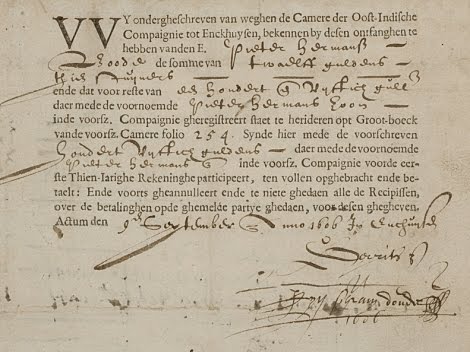 WY ondergheschreven van weghen de Camere der Oost-Indische
Compaignie tot Enckhuysen, bekennen by desen ontfanghen te
hebben vanden E. Pieter Hermansz
Boode de somme van twaelff guldens
thien stuyvers
ende dat voor reste van hondert Vijftich gull
daer mede de voornoemde Pieter Hermans Soon
inde voorsz. Compaignie gheregistreert staet te heridereren opt Groot-boeck
vande voorsz. Camere folio 254. Synde hier mede de voorschreven
hondert Vijftich guldens daer mede de voornoemde
Pieter Hermans inde voorsz. Compaignie voorde eer-
ste Thien-Iarighe Rekeninghe participeert, ten vollen opghebracht ende be-
taelt: Ende voorts gheannulleert ende te niete ghedaen alle de Recipissen,
over de betalinghen opde ghemelde partye ghedaen, voor desen ghegheven.
Actum den 9 September Anno 1606 In Enchuysen
Gerrits
1606